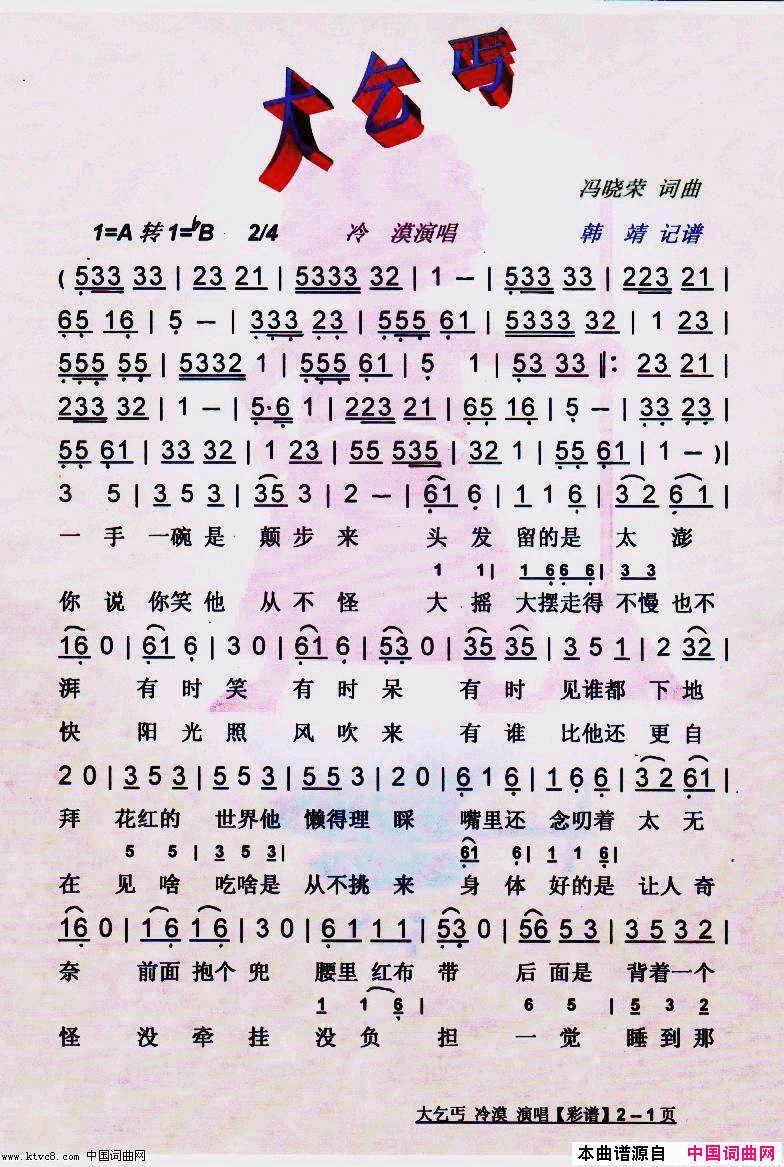 大乞丐
冯晓荣 词曲
1=A 转 1=♭B 2/4 冷 漠演唱 韩 靖 记谱
( 533 33 | 23 21 | 5333 32 | 1 — | 533 33 | 223 21 |
65 16 | 5 — | 333 23 | 555 61 | 5333 32 | 1 23 |
555 55 | 5332 1 | 555 61 | 5 1 | 53 33 ‖: 23 21 |
233 32 | 1 — | 5·6 1 | 223 21 | 65 16 | 5 — | 33 23 |
55 61 | 33 32 | 1 23 | 55 535 | 32 1 | 55 61 | 1 — )|
3 5 | 3 5 3 | 35 3 | 2 — | 61 6 | 1 1 6 | 3 2 6 1 |
一 手 一碗 是 颠 步 来 头 发 留的是 太 澎
1 1 | 1 6 6 6 | 3 3
你 说 你笑他 从 不 怪 大 摇 大摆走得 不慢 也不
16 0 | 61 6 | 3 0 | 61 6 | 53 0 | 35 35 | 3 5 1 | 2 32 |
湃 有 时 笑 有 时 呆 有 时 见谁都 下 地
快 阳 光 照 风 吹 来 有 谁 比他还 更 自
2 0 | 3 5 3 | 5 5 3 | 5 5 3 | 2 0 | 6 1 6 | 1 6 6 | 3 2 61 |
拜 花红的 世界他 懒得理 睬 嘴里还 念叨着 太 无
5 5 | 3 5 3 | 61 6 | 1 1 6 |
在 见 啥 吃啥是 从不挑 来 身 体 好的是 让人 奇
16 0 | 1 6 1 6 | 3 0 | 6 1 1 1 | 53 0 | 56 5 3 | 3 5 3 2 |
奈 前面 抱个 兜 腰里 红布 带 后 面是 背着一个
1 1 6 | 6 5 | 5 3 2
怪 没 牵 挂 没 负 担 一 觉 睡到那
大乞丐 冷漠 演唱【彩谱】2－1页
www.ktvc8.com 中国词曲网
本曲谱源自 中国词曲网